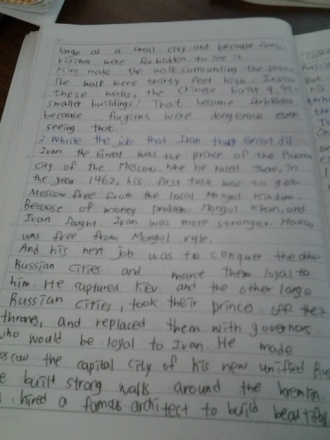 large as a small city, and because foreign
visitors were forbidden to see it
Ming made the walls surrounding the palace
The walls were thirty feet high. Inside
these walls, the Chinese built 9,999
smaller buildings. That became forbidden
because forgions were dangerous even
seeing that
2. Write the job that Ivan that Great did
Ivan the Great was the prince of the Russian
City of the Moscow. he ruled there, in
the year 1462, his first task was to get
Moscow free from the local Mongol Kingdom.
Because of money problem, Mongol Khan, and
Ivan fought. Ivan was more stronger.
was free from Mongol rule.
And his next job was to conquer the other
Russian Cities and make them loyal to
him. He captured Kiev and the other large
Russian Cities, took their princes off their
thrones, and replaced them with governors
who would be loyal to Ivan He made
Moscow the capital city of his new unified
built strong walls around the kremlin
hired a famous architect to build beautiful